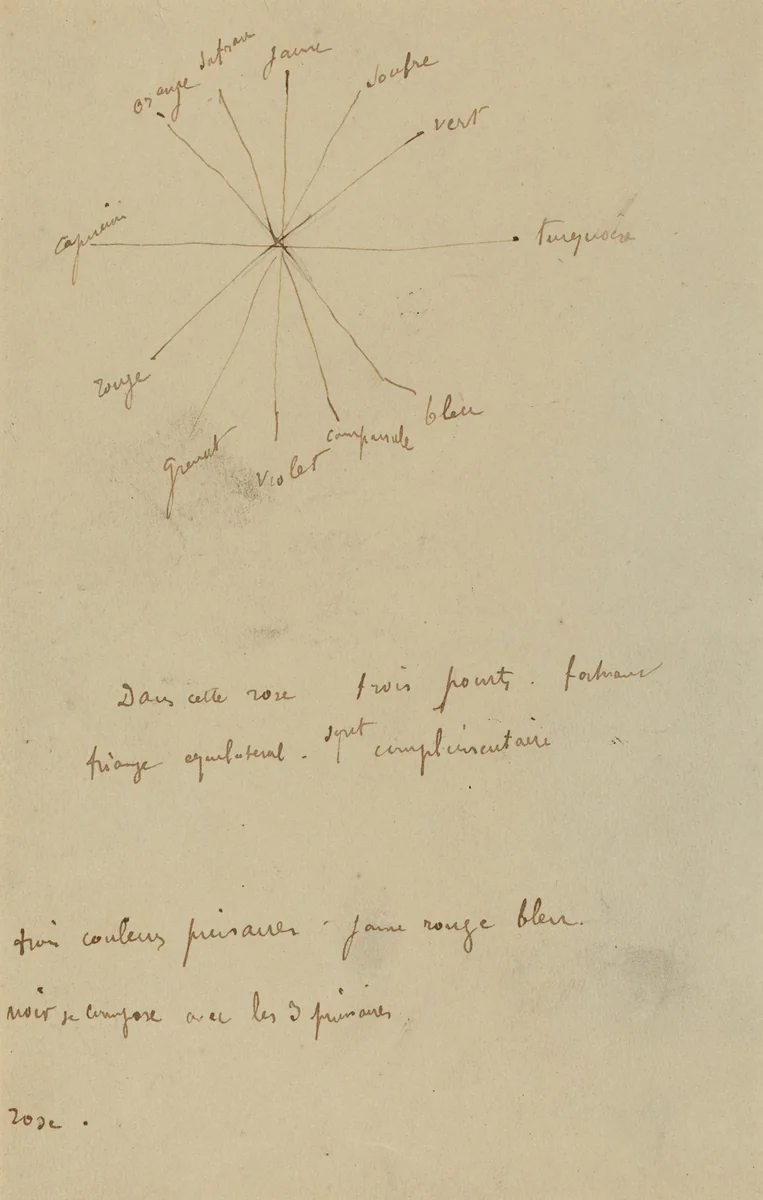 orange
safran
jaune
soufre
vert
turquoise
capucine
rouge
grenat
violet
campanule
bleu
Dans cette rose trois points. formant
triangle equilateral. sont complémentaire
trois couleurs primaires - jaune rouge bleu.
noir se compose avec les 3 primaires.
rose.